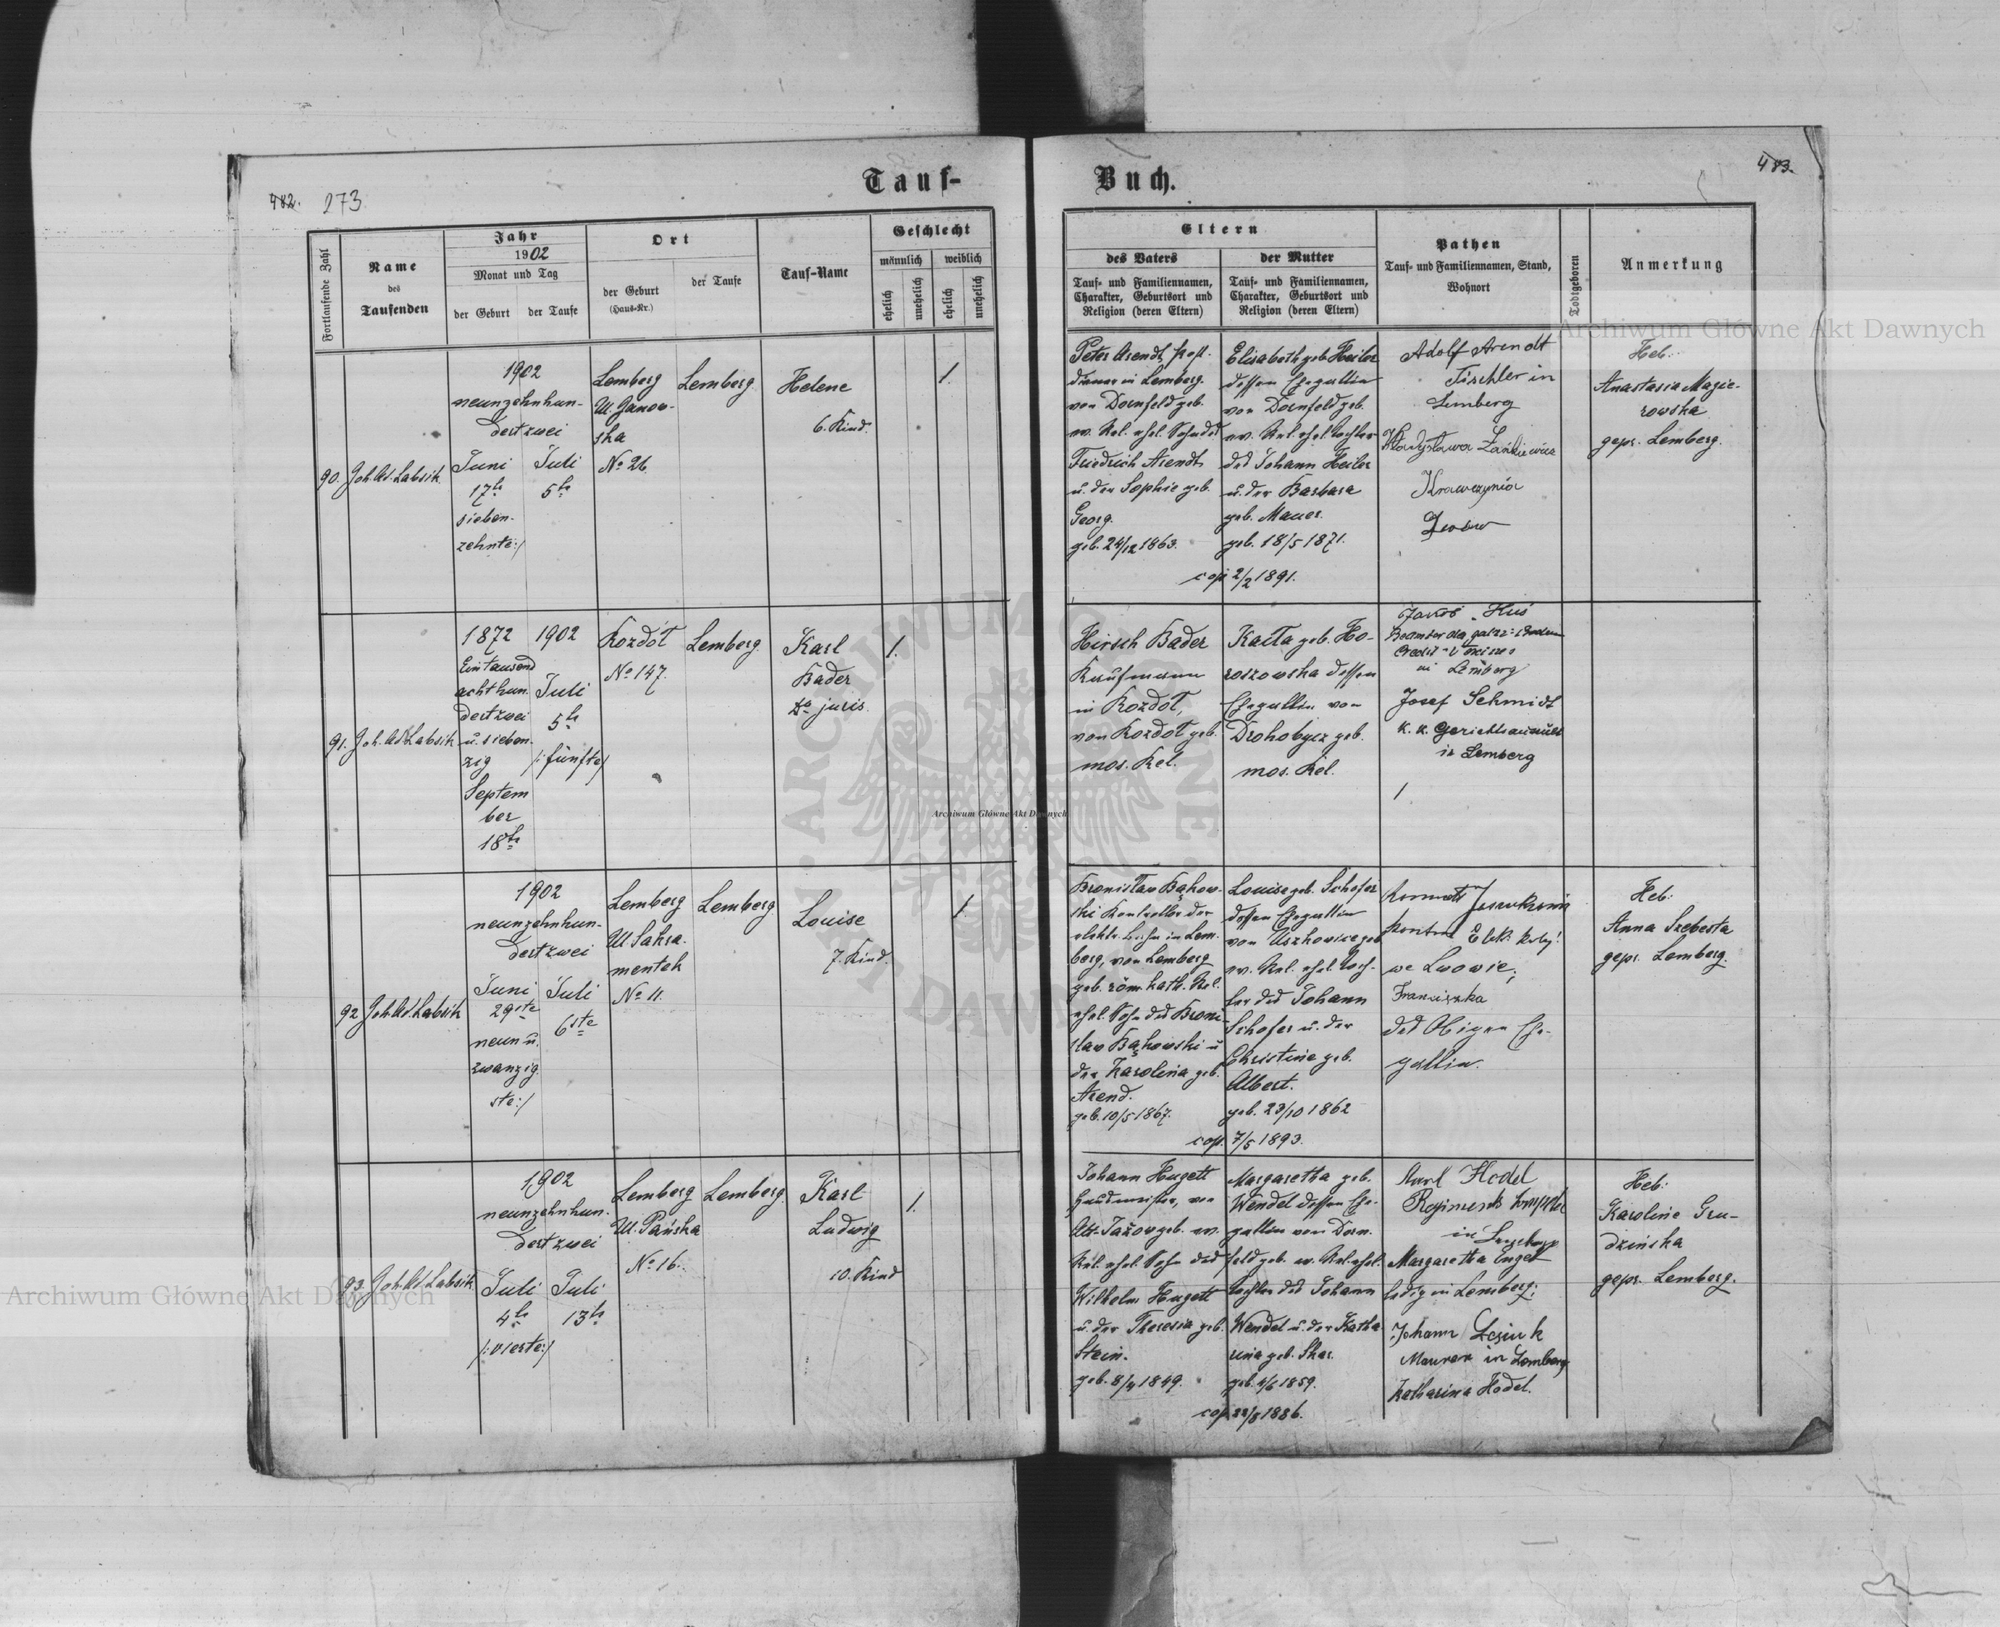 482. 273
Tauf-
Buch.
483.
Fortlaufende Zahl
Name
des
Taufenden
Jahr
1902
Monat und Tag
der Geburt
der Taufe
Ort
der Geburt
(Haus-Nr.)
der Taufe
Tauf-Name
Geschlecht
männlich
weiblich
ehelich
unehelich
ehelich
unehelich
Eltern
des Vaters
Tauf- und Familiennamen,
Charakter, Geburtsort und
Religion (deren Eltern)
der Mutter
Tauf- und Familiennamen,
Charakter, Geburtsort und
Religion (deren Eltern)
Pathen
Tauf- und Familiennamen, Stand,
Wohnort
Todtgeboren
Anmerkung
90.
Joh. Ad. Labsik
1902
neunzehnhun-
dert zwei
Juni
17te
sieben-
zehnte:/
Juli
5te
Lemberg
Ul. Janow-
ska
No 26.
Lemberg
Helene
6. Kind.
1.
Peter Arendt,
diener in Lemberg.
von Dornfeld geb.
ev. Rel. ehel. Sohn des
Friedrich Arendt
u. der Sophie geb.
Georg.
geb. 24/12 1863.
Elisabeth geb. Heiler
dessen Ehegattin
von Dornfeld geb.
ev. Rel. ehel. Tochter
des Johann Heiler
u. der Barbara
geb. Mauer.
geb. 18/5 1871.
cop. 2/2 1891.
Adolf Arendt
Tischler in
Lemberg
Władysława
Krawczynia
Lwów
Heb.
Anastasia Mazie-
rowska
gepr. Lemberg.
91.
Joh. Ad. Labsik
1872
Eintausend
achthun
dert zwei
u. sieben-
zig
Septem
ber
18te
1902
Juli
5te
/:fünfte/
Rozdół
No 147.
Lemberg
Karl
Bader
Dr juris.
1.
Hirsch Bader
Kaufmann
in Rozdół,
von Rozdół geb.
mos. Rel.
Raita geb. Ho-
roszowska dessen
Ehegattin von
Drohobycz geb.
mos. Rel.
Jakob Hus
Beamter des galiz.
Credit-Vereines
in Lemberg
Josef Schmidt
k. k.
in Lemberg
92
Joh. Ad. Labsik
1902
neunzehnhun-
dert zwei
Juni
29ste
neun u.
zwanzig
ste:/
Juli
6ste
Lemberg
Ul. Sakra-
mentek
No 11.
Lemberg
Louise
7. Kind.
1.
Bronisław Bąkow-
ski Kontrollor der
elektr. Bahn in Lem-
berg, von Lemberg
geb. röm. kath. Rel.
ehel. Sohn des Broni-
slaw Bąkowski u
der Karolina geb.
Arend.
geb. 10/5 1867.
Louise geb. Schofer
dessen Ehegattin
von Uszkowice geb
ev. Rel. ehel. Toch-
ter des Johann
Schofer u. der
Christine geb.
Albert.
geb. 23/10 1862
cop. 7/5 1893.
we Lwowie;
Franciszka
des Obigen Ehe-
gattin.
Heb.
Anna Szebesta
gepr. Lemberg.
93
Joh. Ad. Labsik
1902
neunzehnhun-
dert zwei
Juli
4te
/:vierte:/
Juli
13te
Lemberg
Ul. Pańska
No 16.
Lemberg.
Karl
Ludwig
10. Kind
1.
Johann Hugett
von
Alt-Jażow geb. ev.
Rel. ehel. Sohn des
Wilhelm Hugett
u. der Theresia geb.
Stein.
geb. 8/4 1849.
Margaretha geb.
Wendel dessen Ehe-
gattin von Dorn-
feld geb. ev. Rel. ehel.
Tochter des Johann
Wendel u. der Katha-
rina geb. Skar.
geb. 4/6 1859.
cop. 22/8 1886.
Karl Hodel
in
Margaretha Engel
ledig in Lemberg;
Johann
Maurer in Lemberg
Katharina Hodel.
Heb.
Karoline Gru-
dzińska
gepr. Lemberg.
Archiwum Główne Akt Dawnych
Archiwum Główne Akt Dawnych
Archiwum Główne Akt Dawnych